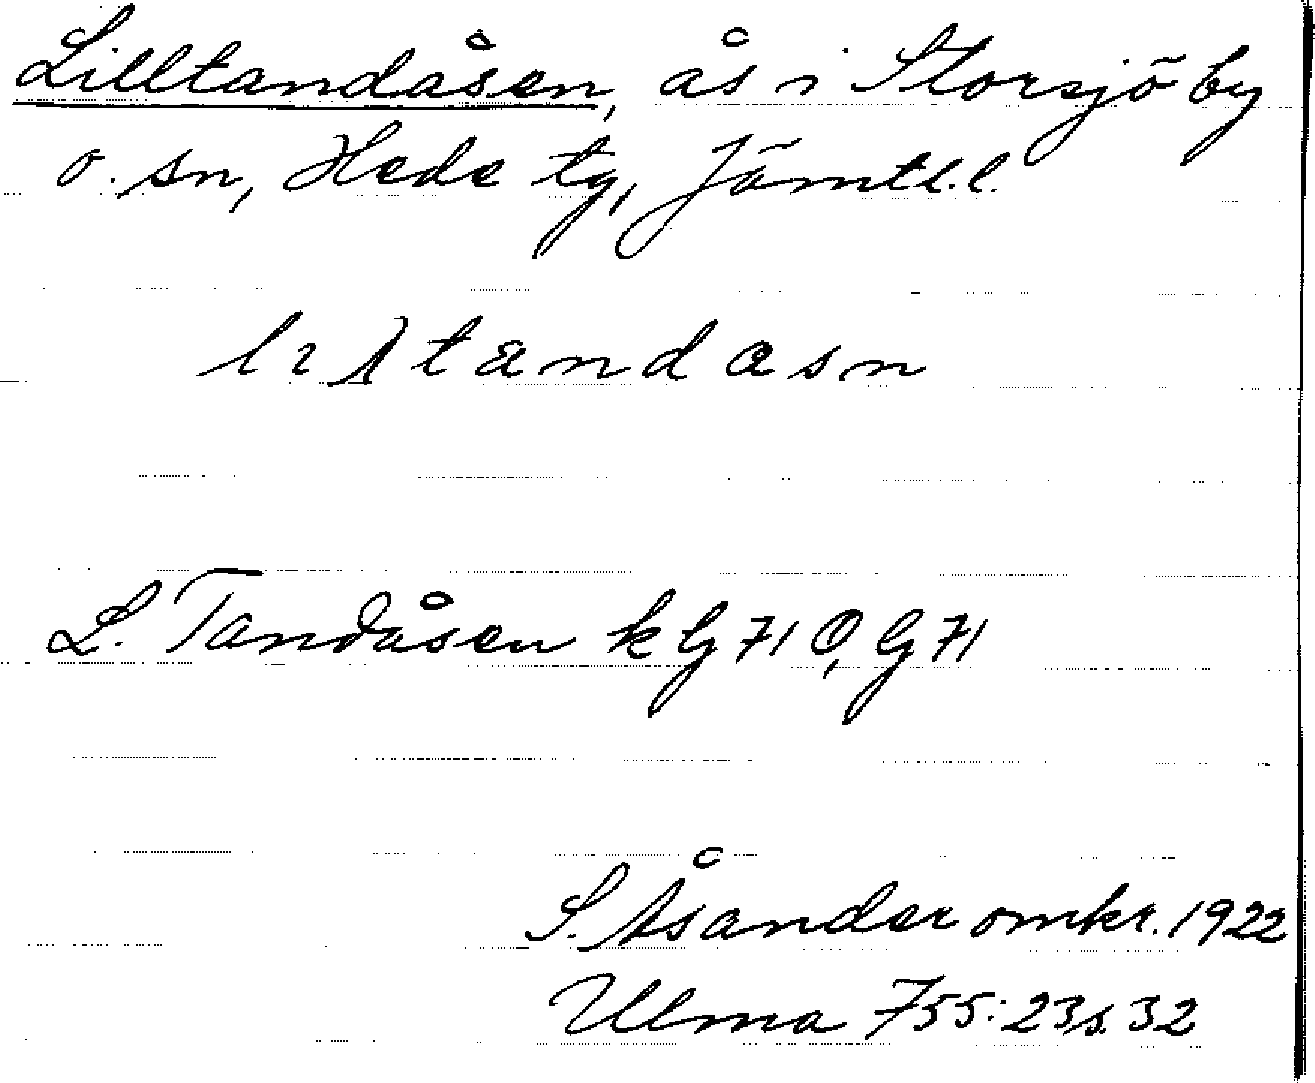 Lilltandåsen, ås i Storsjö by
o. sn, Hede tg, Jämtl.l.
L. Tandåsen k G 71 O, G 71
S. Åsander omkr. 1922
Ulma 755:23 s. 32